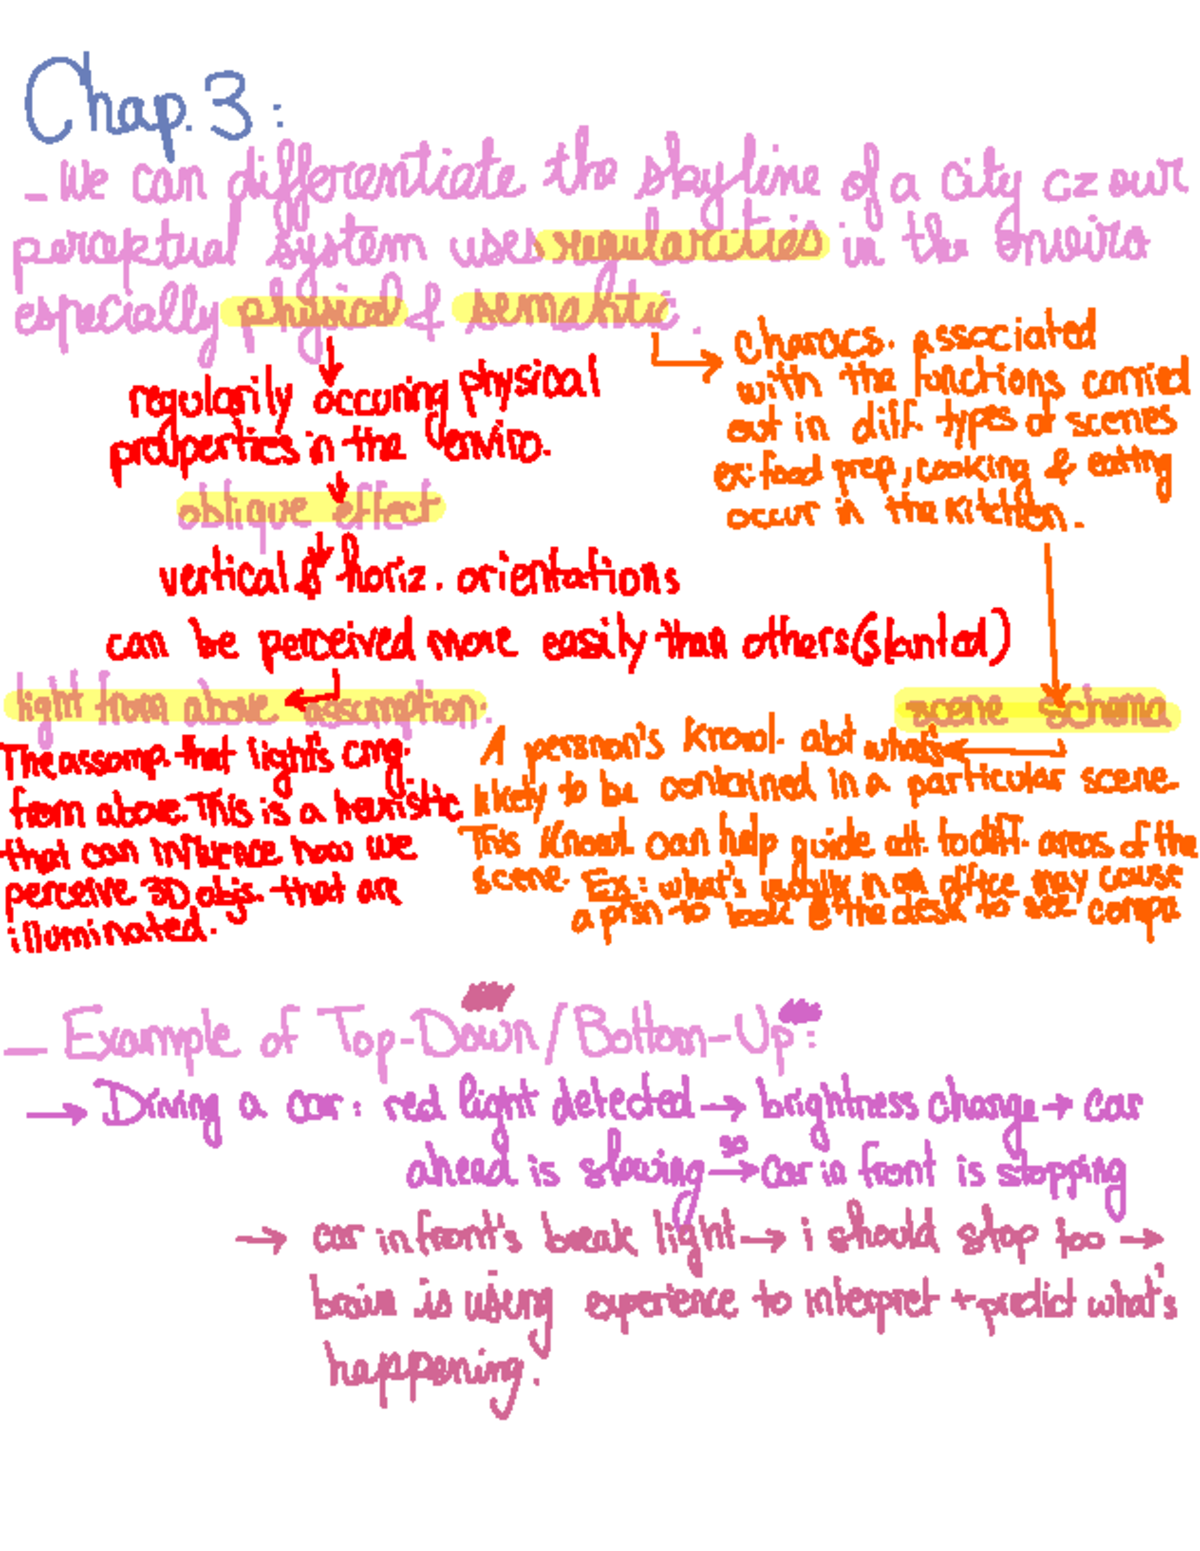 Chap. 3:
- We can differentiate the skyline of a city cz our
perceptual system uses regularities in the enviro
especially physical & semantic.
regularily occuring physical
properties in the enviro.
oblique effect
vertical & horiz. orientations
can be perceived more easily than others (slanted)
light from above assumption.
The assomp. that light's cmg.
from above. This is a heuristic
that can influence how we
perceive 3D objs. that are
illuminated.
characs. associated
with the functions carried
out in diff. types of scenes
ex: food prep, cooking & eating
occur in the kitchen.
scene schema
A persnon's knowl. abt what's
likely to be contained in a particular scene.
This knowl. can help guide att. to diff. areas of the
scene. Ex: what's usually in an office may cause
a prsn to look @ the desk to see compu
- Example of Top-Down/Bottom-Up:
→ Driving a car: red light detected → brightness change → car
ahead is slowing → so car in front is stopping
→ car in front's break light → i should stop too →
brain is using experience to interpret + predict what's
happening.